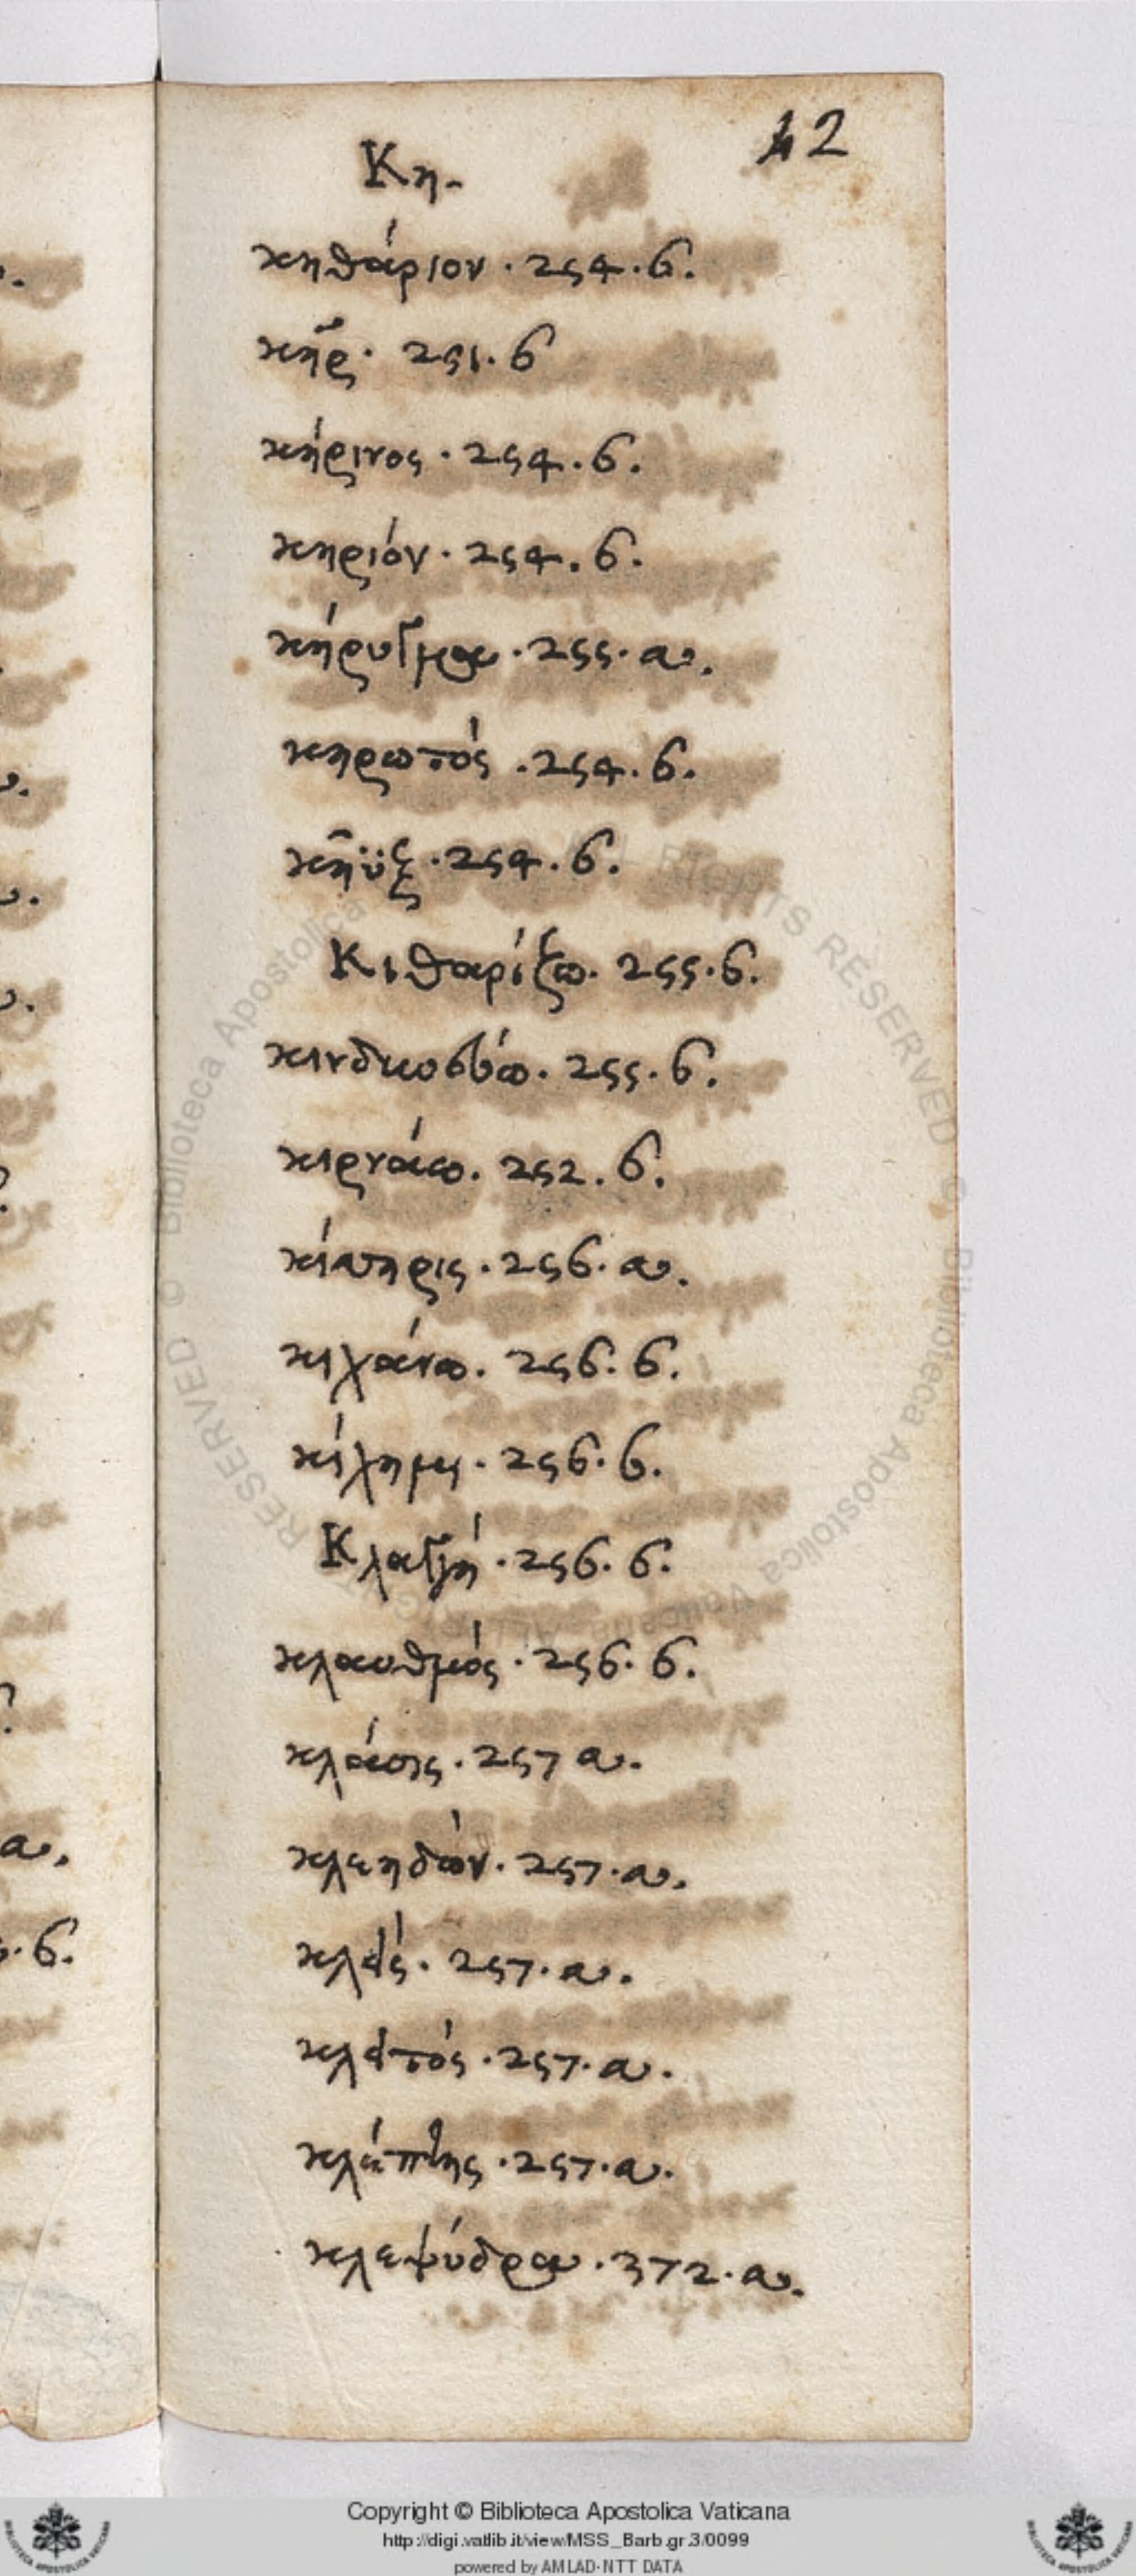 42
Κη.
κηθάριον . 254 . β.
κῆρ . 251 . β
κήρινος . 254 . β.
κηρίον . 254 . β.
κήρυγμα . 255 . α.
κηρωτός . 254 . β.
κῆϋξ . 254 . β.
Κιθαρίζω . 255 . β.
252 . β.
256 . α.
κιχάνω . 256 . β.
κίχημι . 256 . β.
Κλαγγή . 256 . β.
κλαυθμός . 256 . β.
κλάσις . 257 α.
κλεηδών . 257 . α.
κλείς . 257 . α.
κλειτός . 257 . α.
κλέπτης . 257 . α.
κλεψύδρα . 372 . α.
Copyright © Biblioteca Apostolica Vaticana
http://digi.vatlib.it/view/MSS_Barb.gr.3/0099
powered by AMLAD-NTT DATA